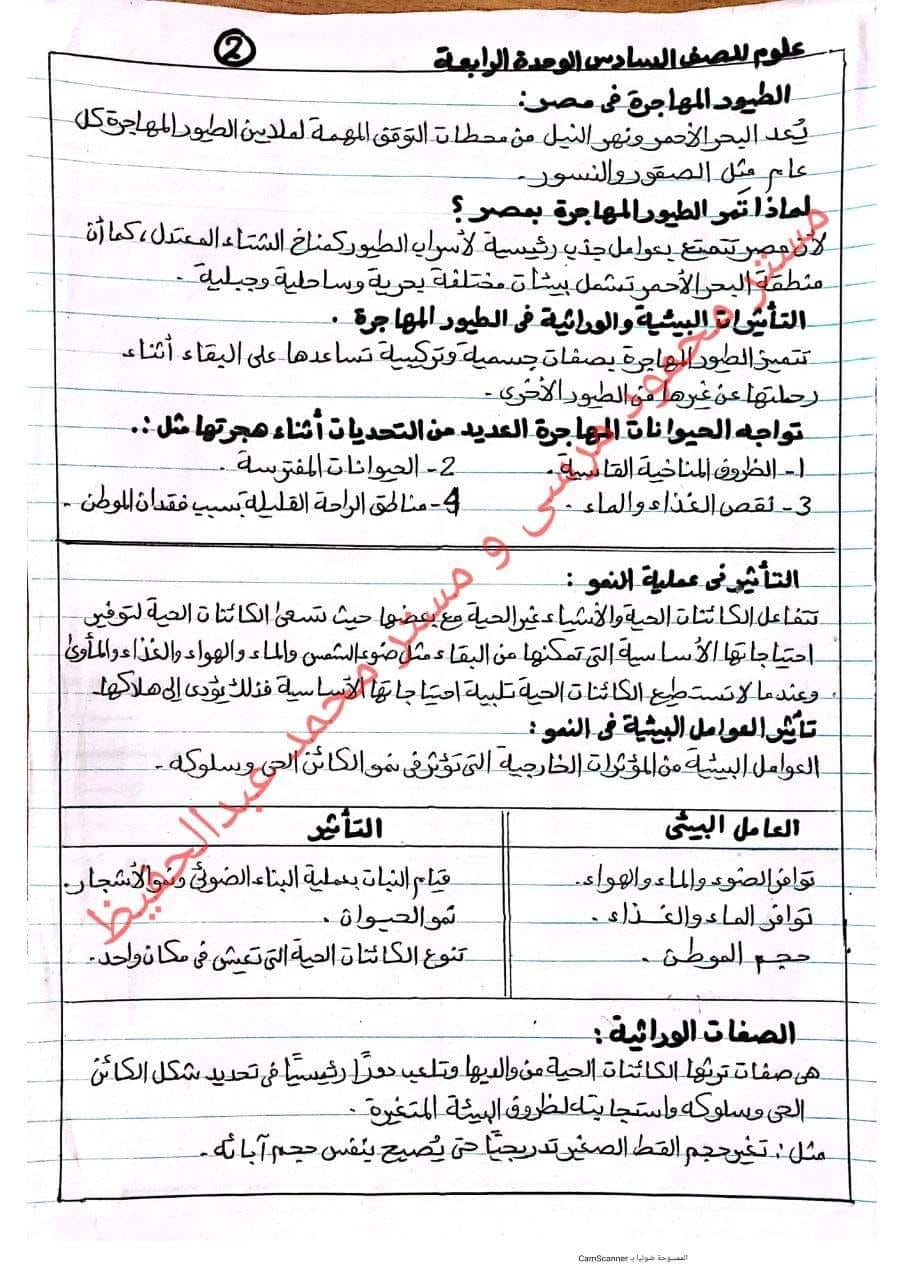 علوم للصف السادس الوحدة الرابعة
2
الطيور المهاجرة فى مصر:
يُعد البحر الأحمر ونهر النيل من محطات التوقف المهمة لملايين الطيور المهاجرة كل
عام مثل الصقور والنسور.
لماذا تمر الطيور المهاجرة بمصر ؟
لأن مصر تتمتع بعوامل جذب رئيسية لأسراب الطيور كمناخ الشتاء المعتدل، كما أن
منطقة البحر الأحمر تشمل بيئات مختلفة بحرية وساحلية وجبلية.
التأثيرات البيئية والوراثية فى الطيور المهاجرة .
تتميز الطيور المهاجرة بصفات جسمية وتركيبية تساعدها على البقاء أثناء
رحلتها عن غيرها من الطيور الأخرى.
تواجه الحيوانات المهاجرة العديد من التحديات أثناء هجرتها مثل :.
1- الظروف المناخية القاسية. 2- الحيوانات المفترسة.
3- نقص الغذاء والماء. 4- مناطق الراحة القليلة بسبب فقدان الموطن.
التأثير فى عملية النمو :
تتفاعل الكائنات الحية والأشياء غير الحية مع بعضها حيث تسعى الكائنات الحية لتوفير
احتياجاتها الأساسية التى تمكنها من البقاء مثل ضوء الشمس والماء والهواء والغذاء والمأوى
وعندما لا تستطيع الكائنات الحية تلبية احتياجاتها الأساسية فذلك يؤدى إلى هلاكها.
تأثير العوامل البيئية فى النمو :
العوامل البيئية من المؤثرات الخارجية التى تؤثر فى نمو الكائن الحى وسلوكه.
العامل البيئى التأثير
توافر الضوء والماء والهواء. قيام النبات بعملية البناء الضوئى ونمو الأشجار.
توافر الماء والغذاء . نمو الحيوان .
حجم الموطن . تنوع الكائنات الحية التى تعيش فى مكان واحد.
الصفات الوراثية :
هى صفات ترثها الكائنات الحية من والديها وتلعب دورًا رئيسيًا فى تحديد شكل الكائن
الحى وسلوكه واستجابته لظروف البيئة المتغيرة .
مثل : تغير حجم القط الصغير تدريجيًا حتى يُصبح بنفس حجم آبائه.
مستر محمود مرسى و مستر محمد عبدالحفيظ
الممسوحة ضوئيا بـ CamScanner